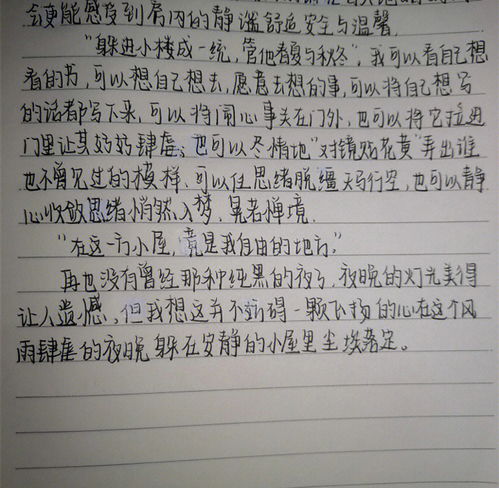 会更能感受到房内的静谧舒适安全与温馨。
"躲进小楼成一统，管他春夏与秋冬"，我可以看自己想
看的书，可以想自己想去，愿意去想的事，可以将自己想写
的话都写下来，可以将闹心事关在门外，也可以将它拉进
门里让其好好肆虐、也可以尽情地"对镜贴花黄"弄出谁
也不曾见过的模样、可以任思绪脱缰天马行空，也可以静
心收敛思绪悄然入梦，晃若禅境。
"在这一方小屋，竟是我自由的地方。"
再也没有曾经那种纯黑的夜了，夜晚的灯光美得
让人遗憾，但我想这并不妨碍一颗飞扬的心在这个风
雨肆虐的夜晚躲在安静的小屋里尘埃落定。